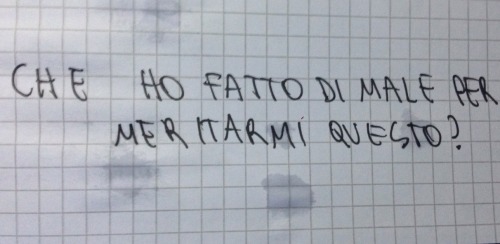 CHE HO FATTO DI MALE PER
MERITARMI QUESTO?